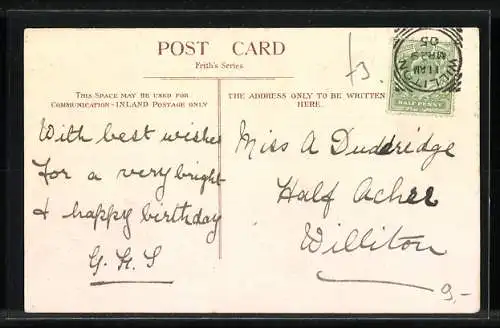 POST CARD
Frith's Series
THIS SPACE MAY BE USED FOR
COMMUNICATION - INLAND POSTAGE ONLY
THE ADDRESS ONLY TO BE WRITTEN
HERE.
With best wishes
for a very bright
& happy birthday
G.H.S
Miss A Duddridge
Half Acher
Williton
WILLITON
11 AM
MR 9
05
HALF PENNY
f3.
9,-